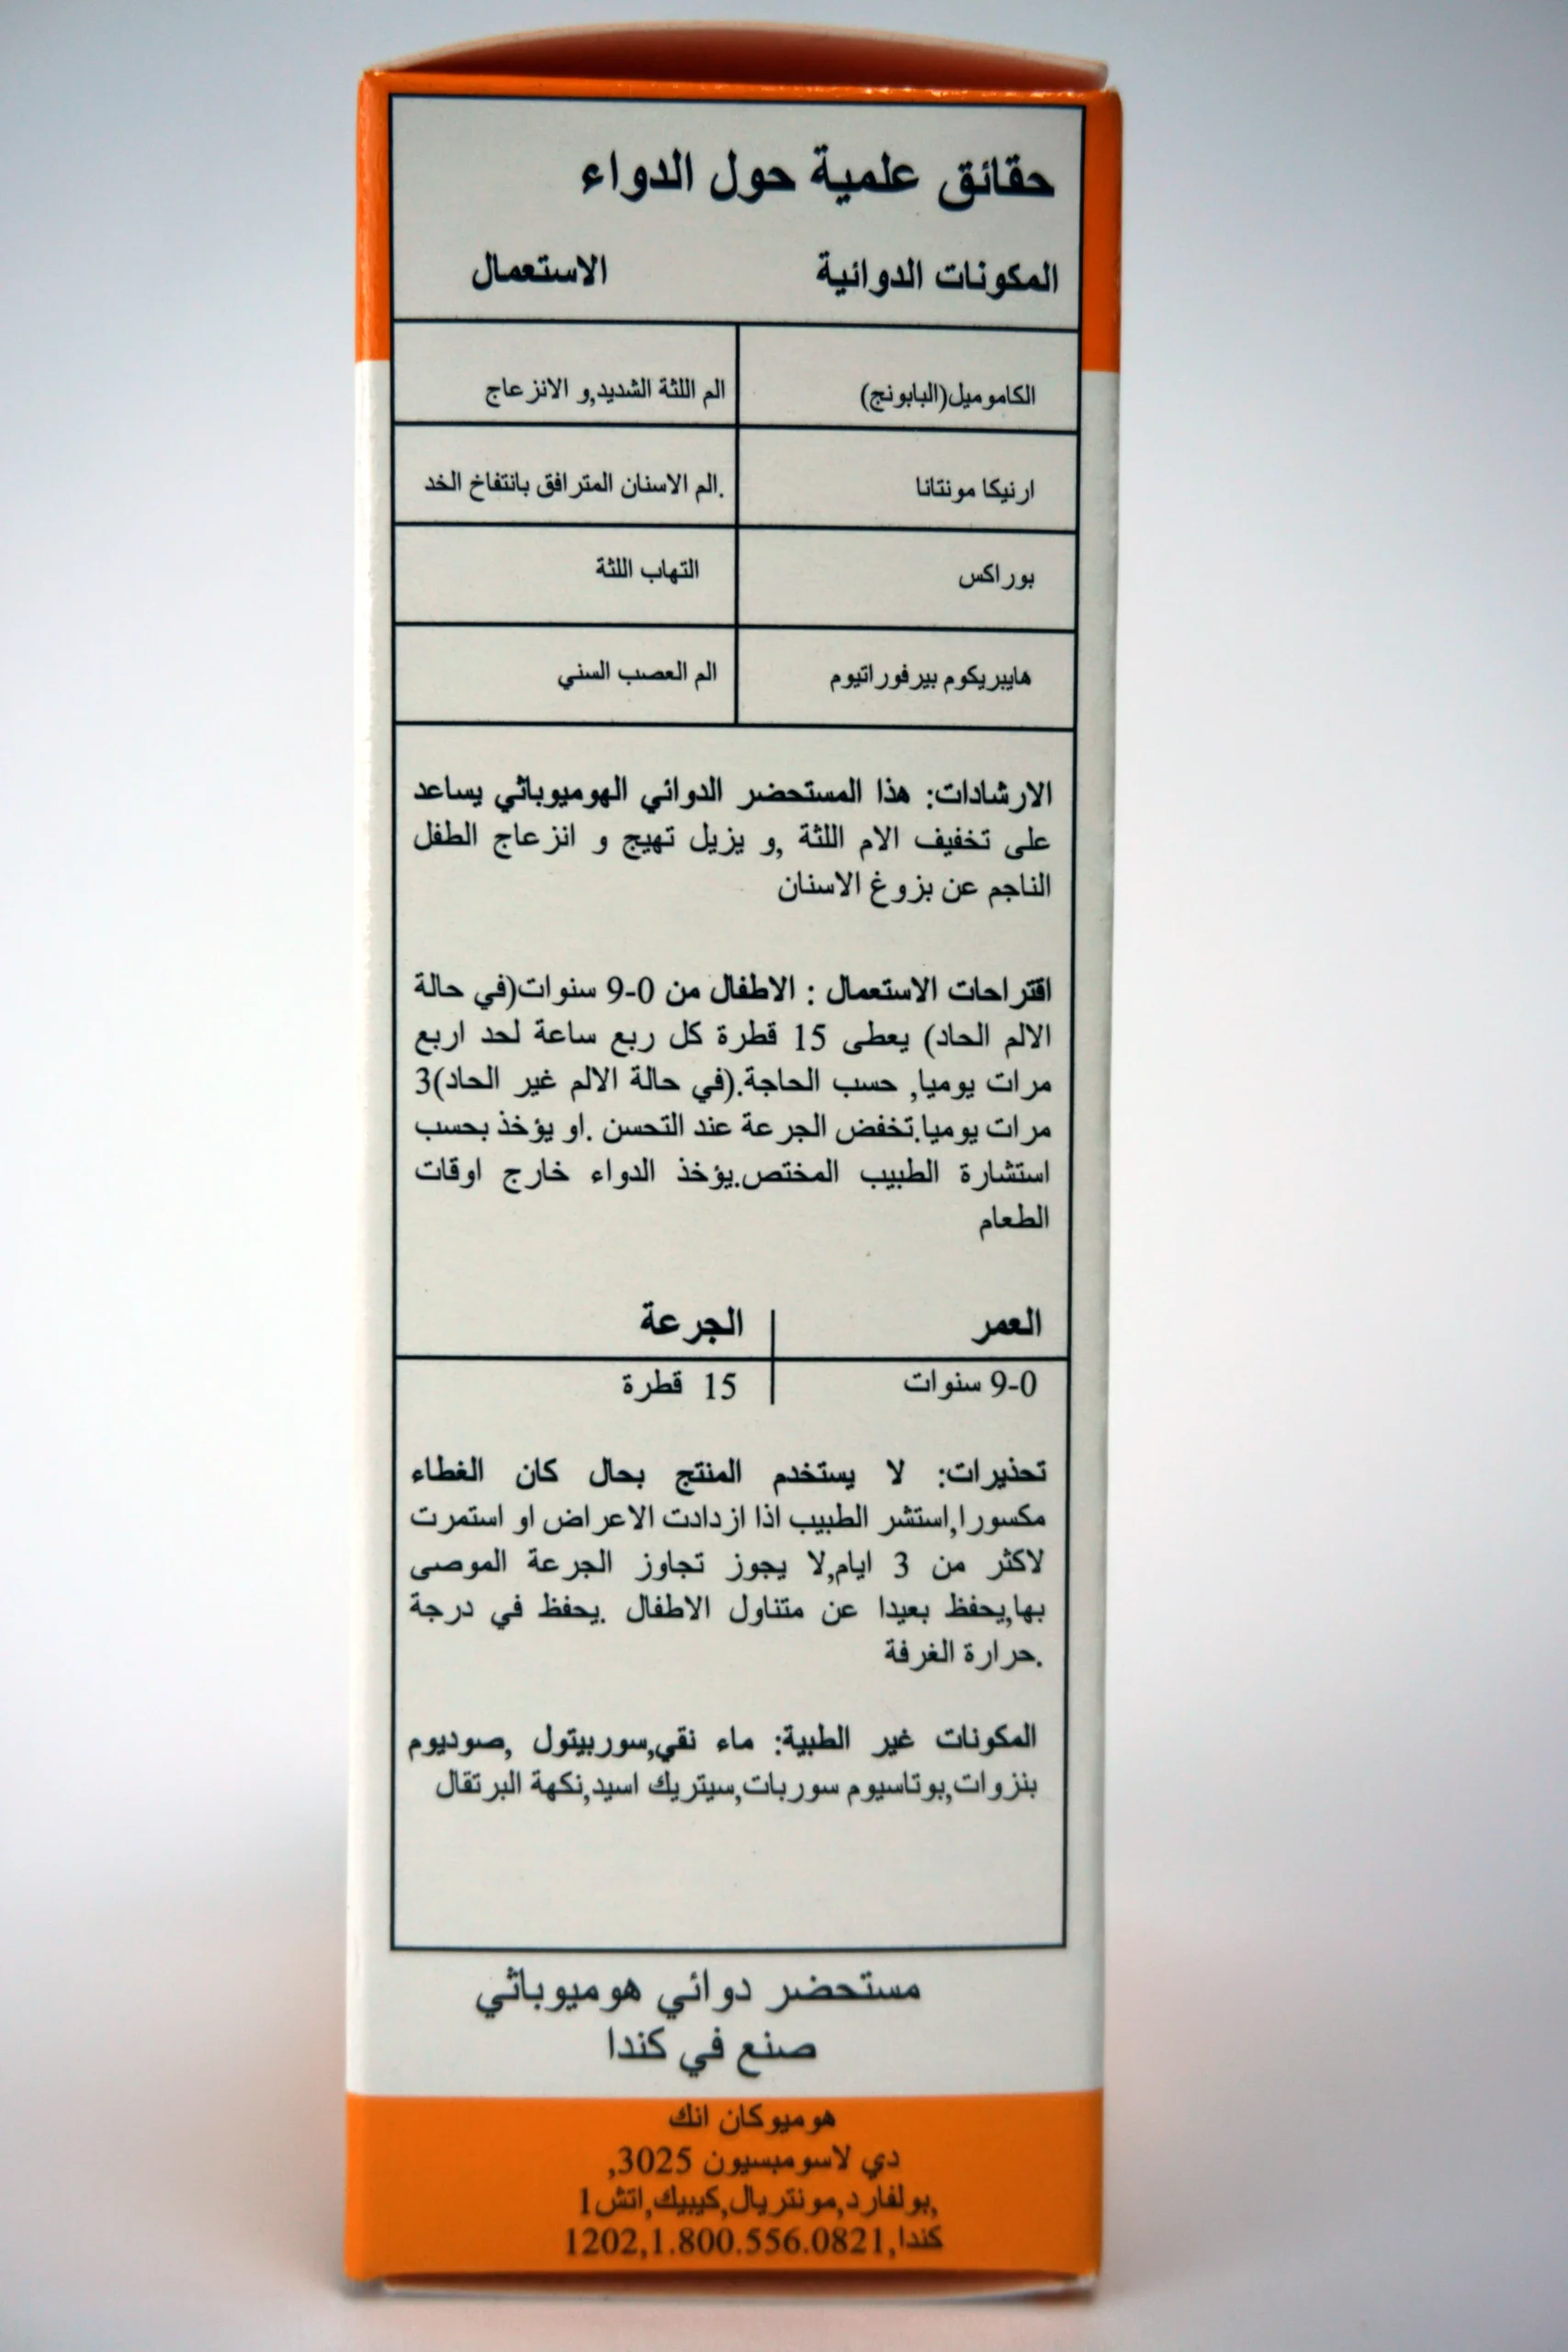 حقائق علمية حول الدواء
المكونات الدوائية الاستعمال
الكاموميل(البابونج) الم اللثة الشديد,و الانزعاج
ارنيكا مونتانا .الم الاسنان المترافق بانتفاخ الخد
بوراكس التهاب اللثة
هايبريكوم بيرفوراتيوم الم العصب السني
الارشادات: هذا المستحضر الدوائي الهوميوباثي يساعد
على تخفيف الام اللثة ,و يزيل تهيج و انزعاج الطفل
الناجم عن بزوغ الاسنان
اقتراحات الاستعمال : الاطفال من 0-9 سنوات(في حالة
الالم الحاد) يعطى 15 قطرة كل ربع ساعة لحد اربع
مرات يوميا, حسب الحاجة.(في حالة الالم غير الحاد)3
مرات يوميا.تخفض الجرعة عند التحسن .او يؤخذ بحسب
استشارة الطبيب المختص.يؤخذ الدواء خارج اوقات
الطعام
العمر الجرعة
0-9 سنوات 15 قطرة
تحذيرات: لا يستخدم المنتج بحال كان الغطاء
مكسورا,استشر الطبيب اذا ازدادت الاعراض او استمرت
لاكثر من 3 ايام,لا يجوز تجاوز الجرعة الموصى
بها,يحفظ بعيدا عن متناول الاطفال .يحفظ في درجة
.حرارة الغرفة
المكونات غير الطبية: ماء نقي,سوربيتول ,صوديوم
بنزوات,بوتاسيوم سوربات,سيتريك اسيد,نكهة البرتقال
مستحضر دوائي هوميوباثي
صنع في كندا
هوميوكان انك
دي لاسومبسيون 3025,
,بولفارد,مونتريال,كيبيك,اتش1
كندا,1202,1.800.556.0821